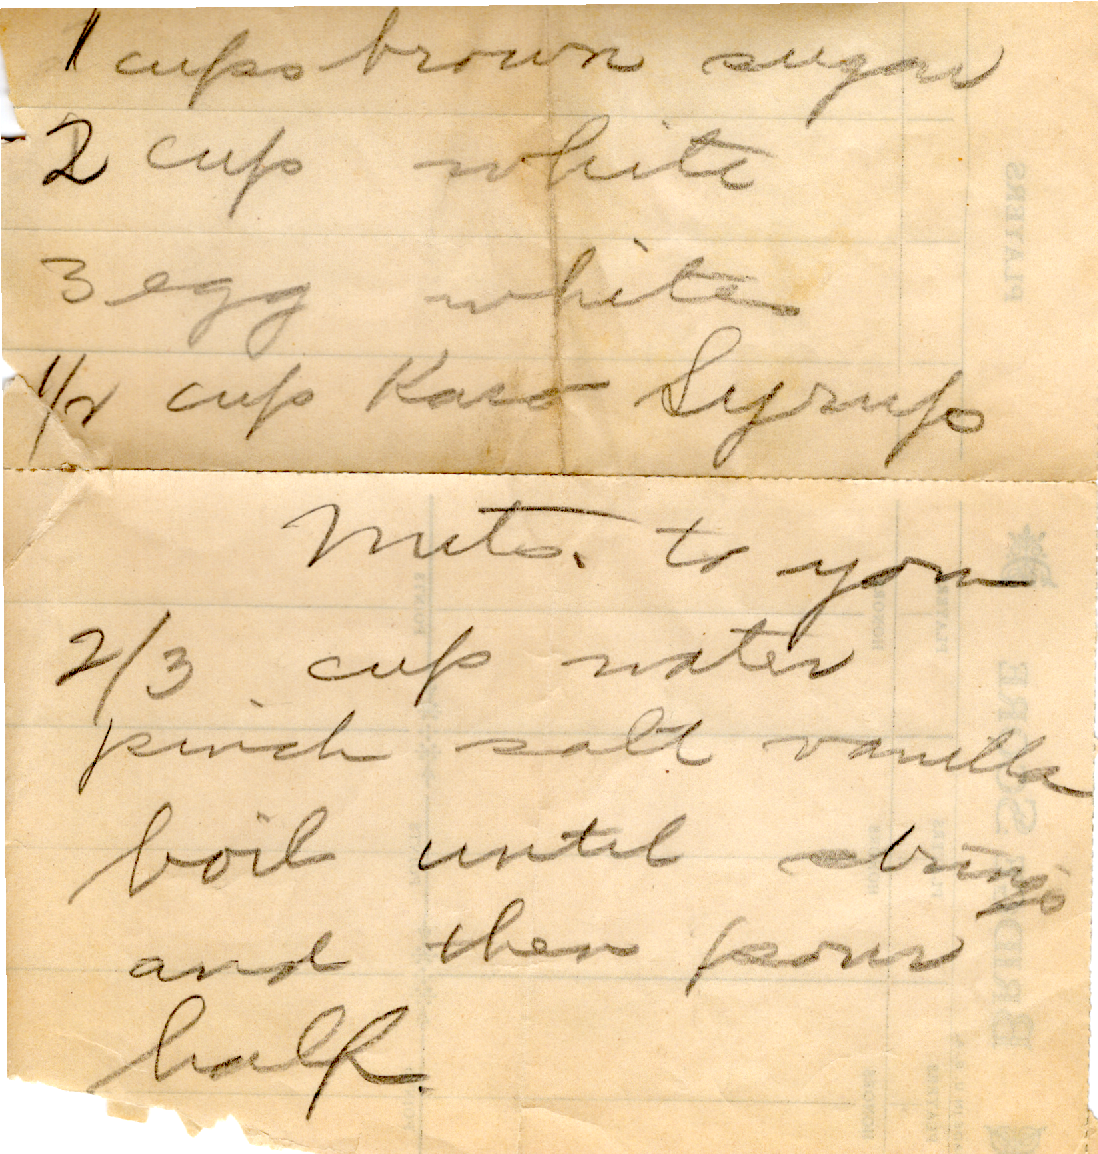 1 cups brown sugar
2 cup white
3 egg whites
1/2 cup Karo Syrup
Nuts. to you
2/3 cup water
pinch salt vanilla
boil until strings
and then pour
half.
PLATERS
BRIDGE SCORE